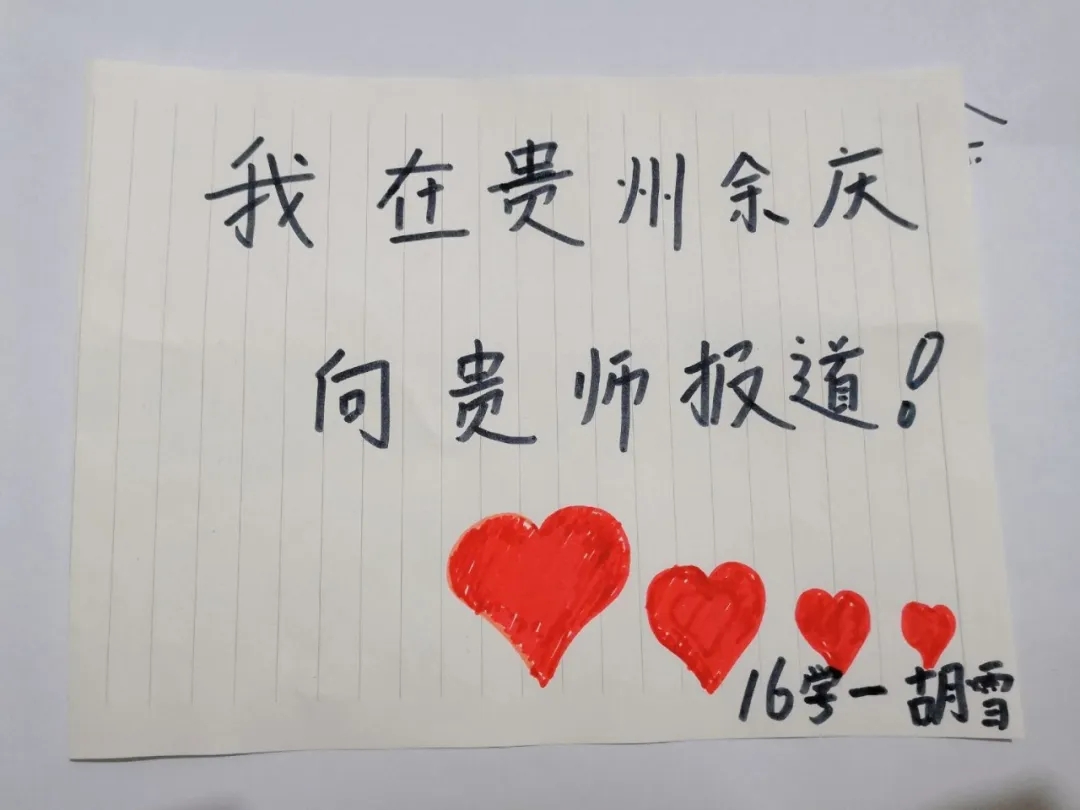 我在贵州余庆
向贵师报道!
16学一胡雪